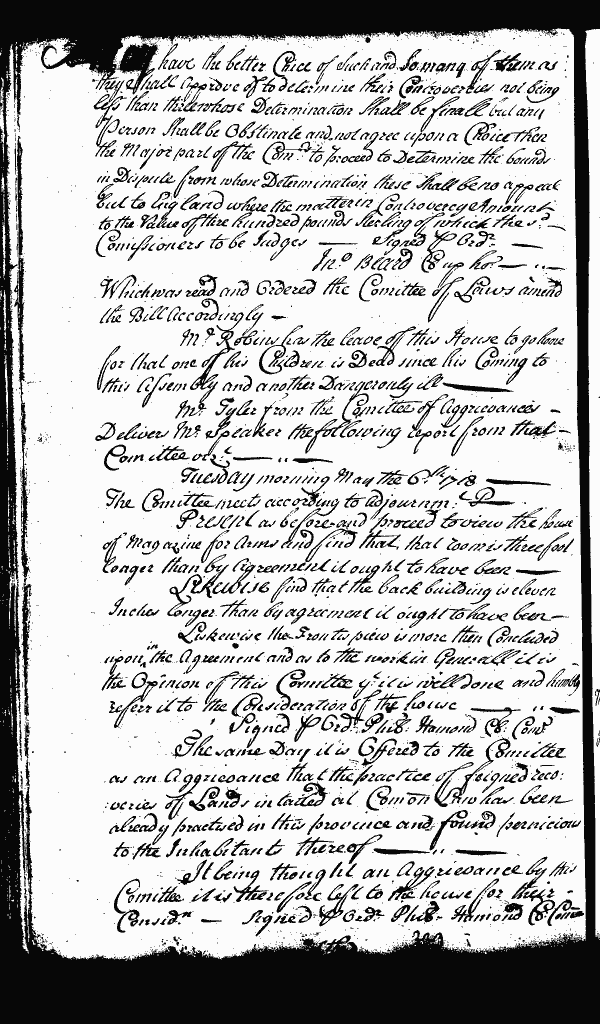 have the better Choice of such and so many of them as
they shall approve of to determine their Controversies not being
less than three whose Determination shall be finall but any
Person Shall be Obstinate and not agree upon a Choice then
the Major part of the Com.rs to proceed to Determine the bounds
in Dispute from whose Determination there shall be no appeal
but to England where the matter in Controversy Amount
to the Value of three hundred pounds Sterling of which the sd
Comissioners to be Judges — Signed P Ordr. —
Jno. Beard Cl up ho. —
Which was read and Ordered the Comittee of Laws amend
the Bill Accordingly —
Mr. Robins has the leave of this House to go home
for that one of his Children is Dead since his Coming to
this Assembly and another Dangerously ill —
Mr. Tyler from the Comittee of Aggrievances —
Delivers Mr. Speaker the following report from that —
Comittee vizt. —
Tuesday morning May the 6th 1718 —
The Comittee meets according to adjournmt. P —
Present as before and proceed to view the house
of Magazine for Arms and find that that room is three foot
longer than by Agreement it ought to have been —
Likewise find that the back building is eleven
Inches longer than by agreement it ought to have been —
Likewise the Frontispiew is more then Concluded
upon in the Agreement and as to the work in Generall it is —
the Opinion of this Comittee yt. it is well done and humbly
referr it to the Consideration of the house —
Signed P Ordr. Phil. Hamond Cl. Comt
The same Day it is Offered to the Comittee
as an Aggrievance that the practice of feigned reco:
veries of Lands intailed at Comon Law has been
already practised in this province and found pernicious
to the Inhabitants thereof —
It being thought an Aggrievance by this
Comittee it is therefore left to the house for their —
Considn. — Signed P Ordr. Phil. Hamond Cl Com